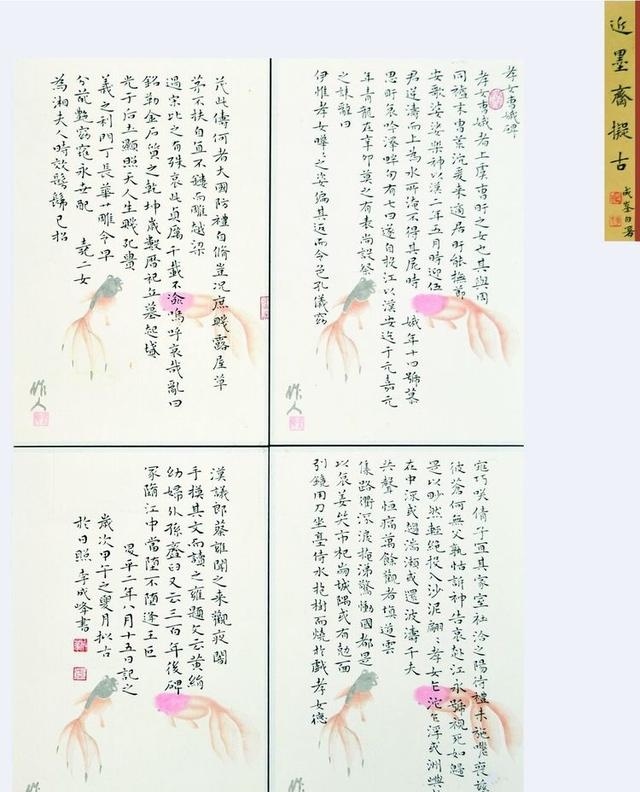 近墨齋擬古
成峯自署
孝女曹娥碑
孝女曹娥者上虞曹盱之女也其先與周
同祖末胄荒沉爰來適居盱能撫節
安歌婆娑樂神以漢二年五月時迎伍
君逆濤而上為水所淹不得其屍時娥年十四號慕
思盱哀吟澤畔旬有七日遂自投江以漢安迄于元嘉元
年青龍在辛卯莫之有表尚設祭
之誄辭曰
伊惟孝女曄〻之姿偏其返而令色孔儀窈
作人
窕巧咲倩兮宜其家室在洽之陽待禮未施嗟喪慈
彼蒼何無父孰怙訴神告哀赴江永號視死如歸
是以眇然輕絕投入沙泥翩〻孝女乍沉乍浮或洲嶼
在中深或趨湍瀨或還波濤千夫
共聲悼痛萬餘觀者填道雲
集路衢泝淚掩涕驚慟國都是
以哀姜哭市杞崩城隅或有勉面
引鏡用刀坐臺待水抱樹而燒於戲孝女德
茂此儔何者大國防禮自修豈況庶賤露屋草
茅不扶自直不鏤而雕越梁
過宋比之有殊哀此貞厲千載不渝嗚呼哀哉亂曰
銘勒金石質之乾坤歲數曆祀丘墓起墳
光于后土顯照天人生賤死貴
義之利門丁長華雕令早
分葩艷窈窕永世配 堯二女
為湘夫人時效髣髴已招
作人
漢議郎蔡雍聞之來觀夜闇
手模其文而讀之雍題文云黃絹
幼婦外孫齏臼又云三百年後碑
冢墮江中當墮不墮逢王叵
昇平二年八月十五日記之
歲次甲午之夏月擬古
於日照李成峰書
作